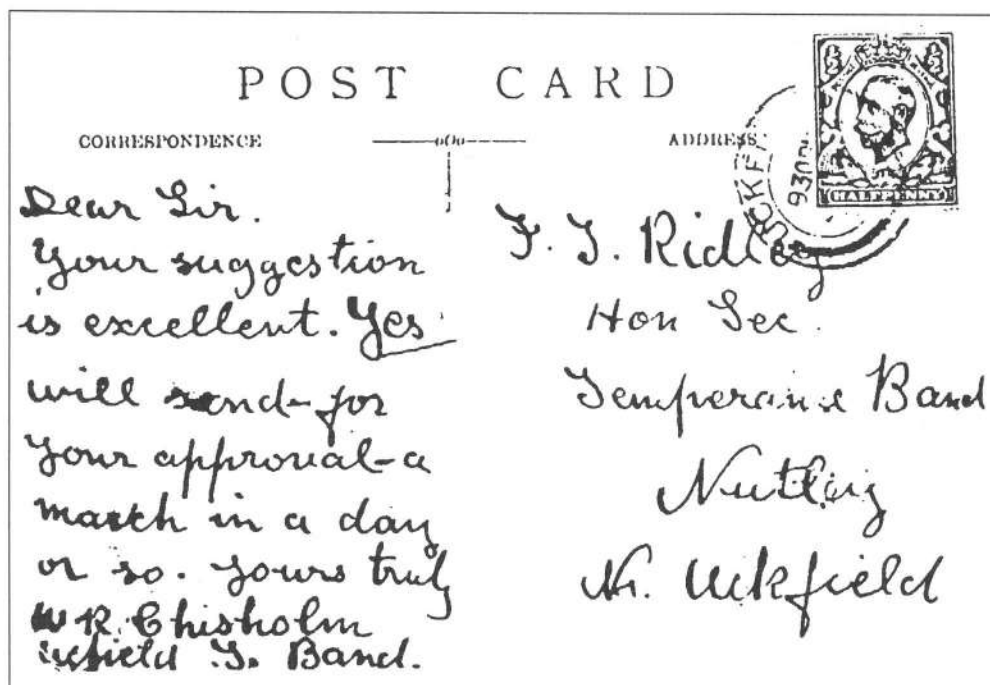 POST CARD
CORRESPONDENCE
ADDRESS
½ ½
HALFPENNY
Dear Sir.
Your suggestion
is excellent. Yes
will send-for
your approval-a
march in a day
or so. Yours truly
W R. Chisholm
T. Band.
F. J. Ridley
Hon Sec.
Temperance Band
Nutley
Nr. Uckfield